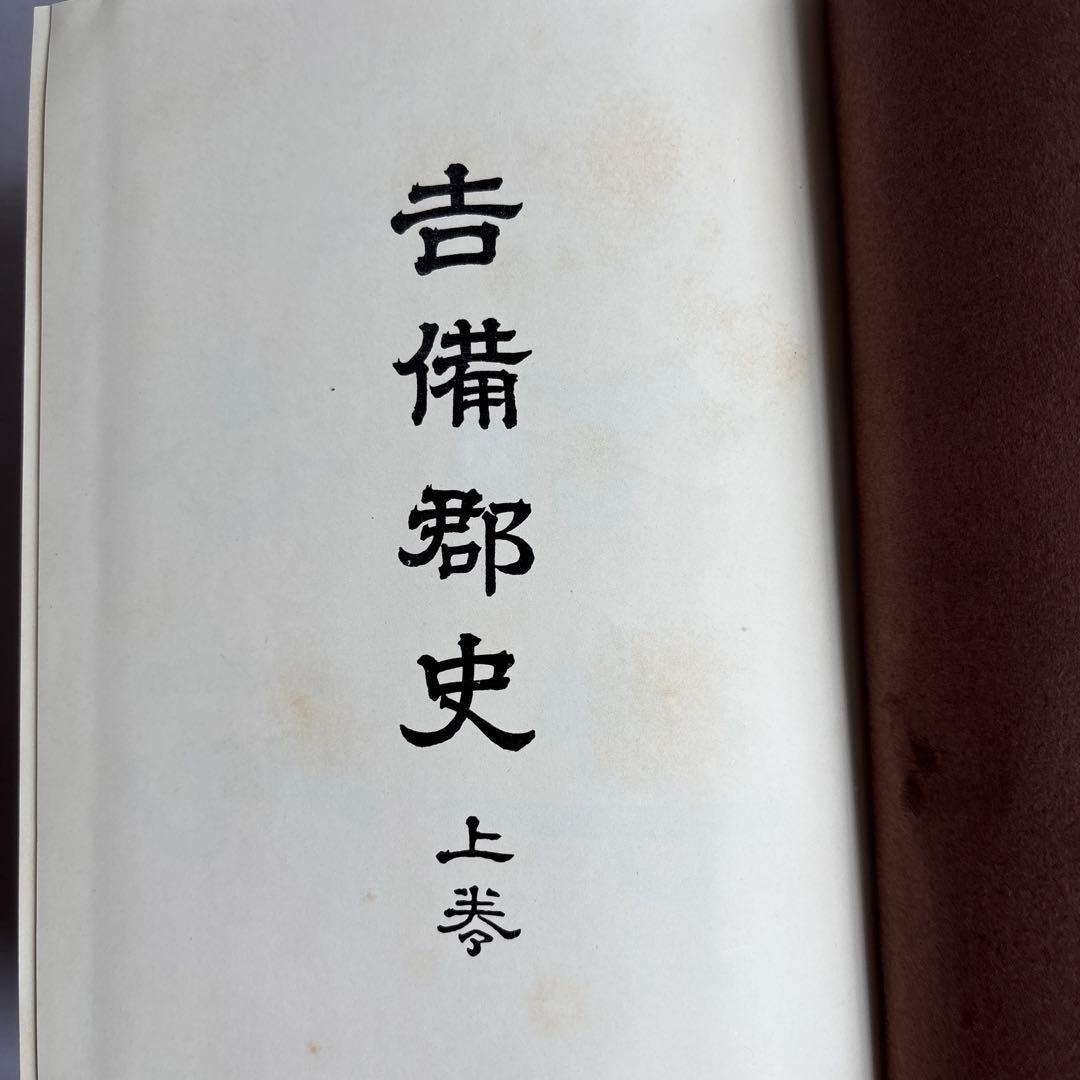 吉備郡史 上巻